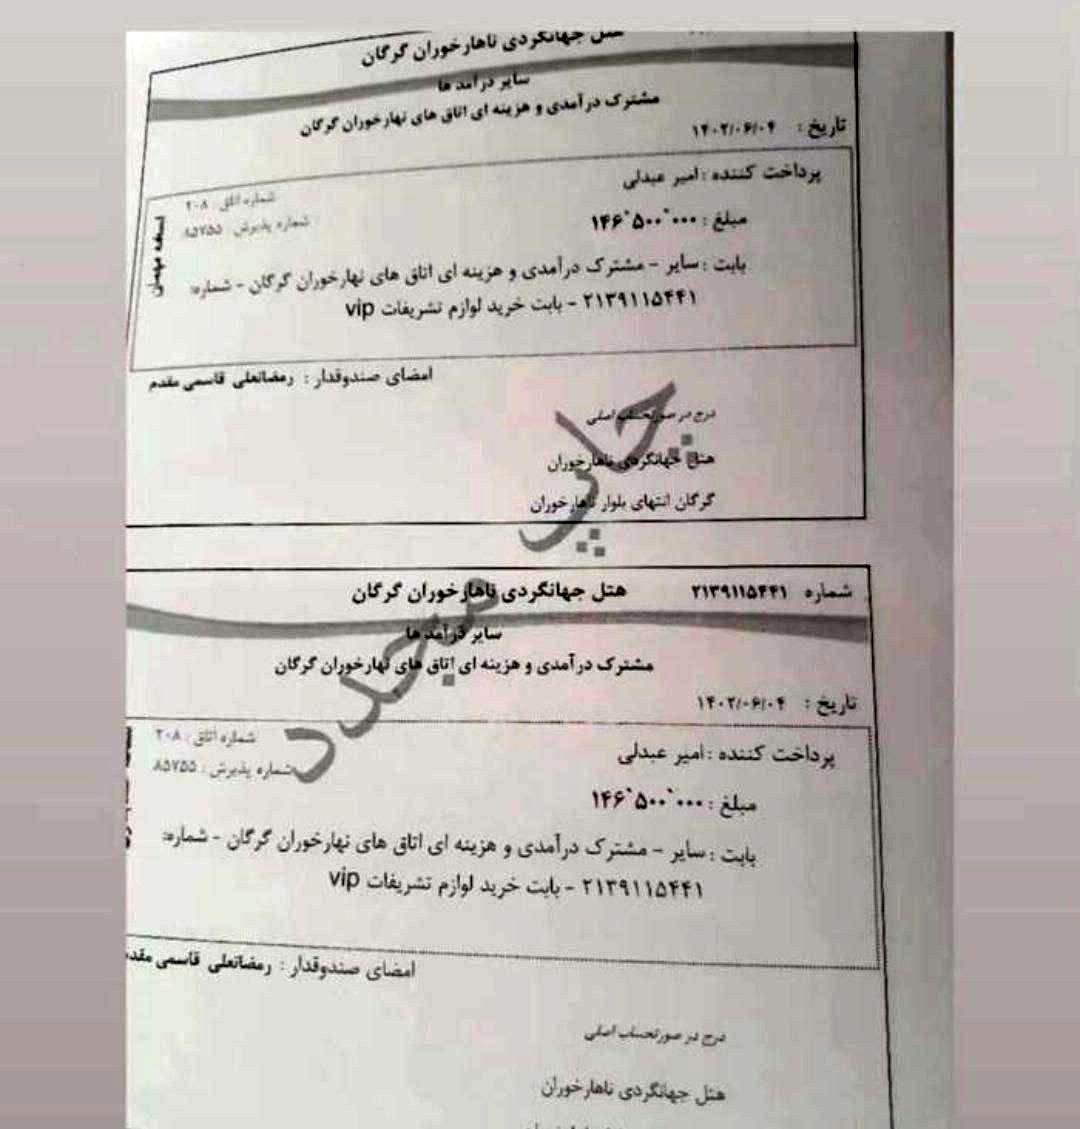 هتل جهانگردی ناهارخوران گرگان
سایر درآمد ها
مشترک درآمدی و هزینه ای اتاق های نهارخوران گرگان
تاریخ : ۱۴۰۲/۰۶/۰۴
پرداخت کننده : امیر عبدلی
شماره اتاق : ۲۰۸
مبلغ : ۱۴۶٬۵۰۰٬۰۰۰
شماره پذیرش : ۸۵۷۵۵
نسخه میهمان
بابت : سایر - مشترک درآمدی و هزینه ای اتاق های نهارخوران گرگان - شماره:
۲۱۳۹۱۱۵۴۴۱ - بابت خرید لوازم تشریفات vip
امضای صندوقدار : رمضانعلی قاسمی مقدم
درج در صورتحساب اصلی
هتل جهانگردی ناهارخوران
گرگان انتهای بلوار ناهارخوران
چاپ مجدد
شماره ۲۱۳۹۱۱۵۴۴۱ هتل جهانگردی ناهارخوران گرگان
سایر درآمدها
مشترک درآمدی و هزینه ای اتاق های نهارخوران گرگان
تاریخ : ۱۴۰۲/۰۶/۰۴
پرداخت کننده : امیر عبدلی
شماره اتاق : ۲۰۸
مبلغ : ۱۴۶٬۵۰۰٬۰۰۰
شماره پذیرش : ۸۵۷۵۵
بابت : سایر - مشترک درآمدی و هزینه ای اتاق های نهارخوران گرگان - شماره:
۲۱۳۹۱۱۵۴۴۱ - بابت خرید لوازم تشریفات vip
امضای صندوقدار : رمضانعلی قاسمی مقدم
درج در صورتحساب اصلی
هتل جهانگردی ناهارخوران